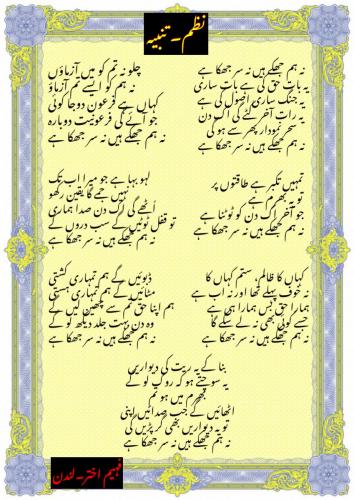 نظم ۔ تنبیہ
نہ ہم جھکے ہیں نہ سر جھکا ہے
یہ بات حق کی ہے بات ساری
یہ جنگ ساری اصول کی ہے
یہ رات آخر ڈھلے گی اک دن
سحر نمودار پھر سے ہو گی
نہ ہم جھکے ہیں نہ سر جھکا ہے
چلو نہ تم کو میں آزماؤں
نہ ہم کو ایسے تم آزماؤ
کہاں ہے فرعون دوجا کوئی
جو آئے گی فرعونیت دوبارہ
نہ ہم جھکے ہیں نہ سر جھکا ہے
تمہیں تکبر ہے طاقتوں پر
تو یہ بھرم ہے
جو آخر اک دن کو ٹوٹنا ہے
نہ ہم جھکے ہیں نہ سر جھکا ہے
لہو بہا ہے جو میرا اب تک
نہیں جمے گا یقین رکھو
اُٹھے گی اک دن صدا ہماری
تو قفل ٹوٹیں گے سب دروں کے
نہ ہم جھکے ہیں نہ سر جھکا ہے
کہاں کا ظالم، ستم کہاں کا
نہ خوف پہلے تھا اور نہ اب ہے
ہمارا حق بس ہمارا ہی ہے
جسے کوئی بھی نہ لے سکے گا
نہ ہم جھکے ہیں نہ سر جھکا ہے
ڈبوئیں گے ہم تمہاری کشتی
مٹائیں گے ہم تمہاری ہستی
ہم اپنا حق تم سے چھین لیں گے
وہ دن بہت جلد دیکھ لو گے
نہ ہم جھکے ہیں نہ سر جھکا ہے
بنا کے یہ ریت کی دیواریں
یہ سوچتے ہو کہ روک لو گے
بھرم میں ہو تم
اٹھائیں گے جب صدائیں اپنی
تو یہ دیواریں بھی گر پڑیں گی
نہ ہم جھکے ہیں نہ سر جھکا ہے
فہیم اختر ۔ لندن